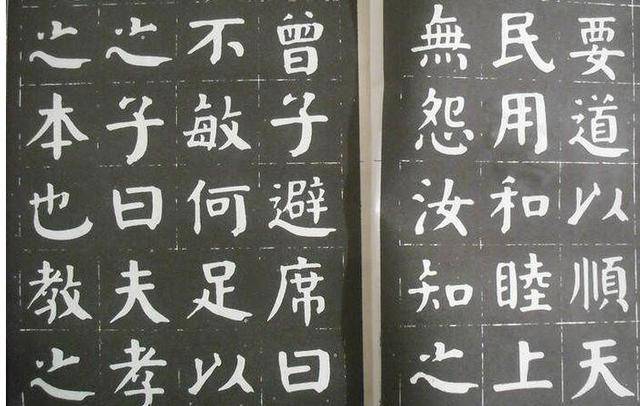 要道以順天
民用和睦上
無怨汝知之
曾子避席曰
不敏何足以
之子曰夫孝
之本也教之